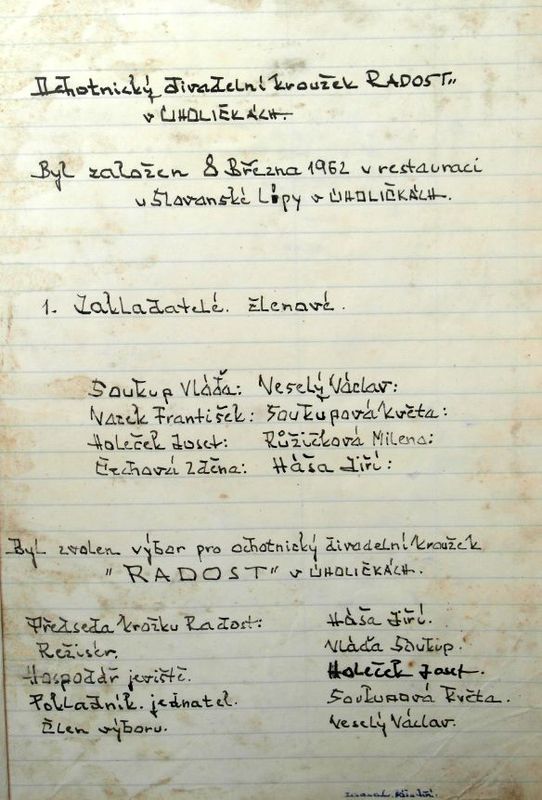 Ochotnický divadelní kroužek RADOST"
v ÚHOLIČKÁCH.
Byl založen 8 Března 1962 v restauraci
u Slovanské Lípy v ÚHOLIČKÁCH.
1. Zakladatelé. členové.
Soukup Vláďa: Veselý Václav:
Vacek František: Soukupová Květa:
Holeček Josef: Růžičková Milena:
Čechová Zděna: Háša Jiří:
Byl zvolen výbor pro ochotnický divadelní kroužek
"RADOST" v ÚHOLIČKÁCH.
Předseda krožku Radost: Háša Jiří.
Režisér. Vláďa Soukup.
Hospodář jeviště. Holeček Josef.
Pokladník. jednatel. Soukupová Květa.
Člen výboru. Veselý Václav.